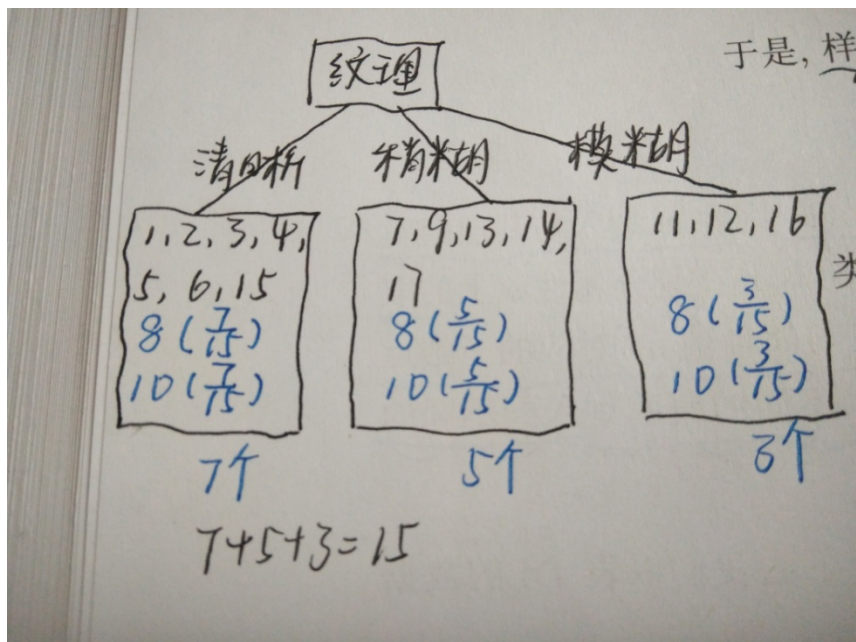 于是, 样
纹理
清晰 稍糊 模糊
1, 2, 3, 4,
5, 6, 15
8 (7/15)
10 (7/15)
7个
7, 9, 13, 14,
17
8 (5/15)
10 (5/15)
5个
11, 12, 16
8 (3/15)
10 (3/15)
3个
类
7+5+3=15